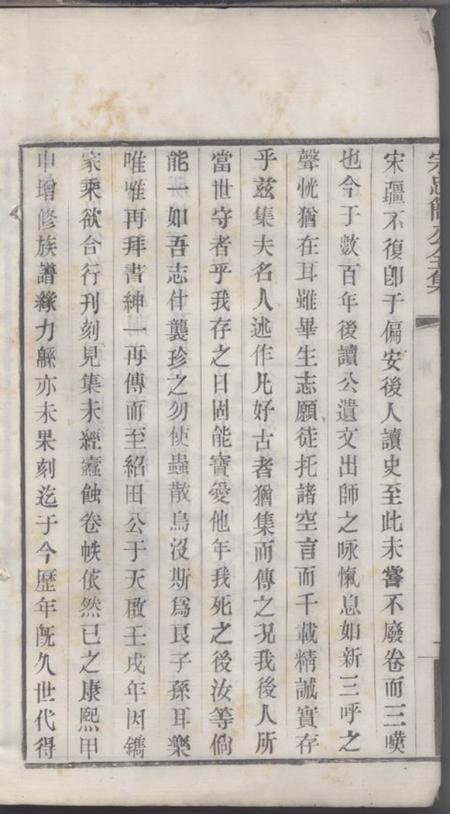 宗忠簡公全集
宋疆不復卽于偏安後人讀史至此未嘗不廢卷而三嘆
也今于數百年後讀公遺文出師之咏愾息如新三呼之
聲恍猶在耳雖畢生志願徒托諸空言而千載精誠實存
乎茲集夫名人述作凡好古者猶集而傳之况我後人所
當世守者乎我存之日固能寶愛他年我死之後汝等倘
能一如吾志什襲珍之勿使蟲散鳥沒斯爲良子孫耳樂
唯唯再拜書紳一再傳而至紹田公于天啟壬戌年因鐫
家乘欲合行刊刻見集未經蠧蝕卷帙依然已之康熙甲
申增修族譜緣力綿亦未果刻迄于今歷年旣久世代得